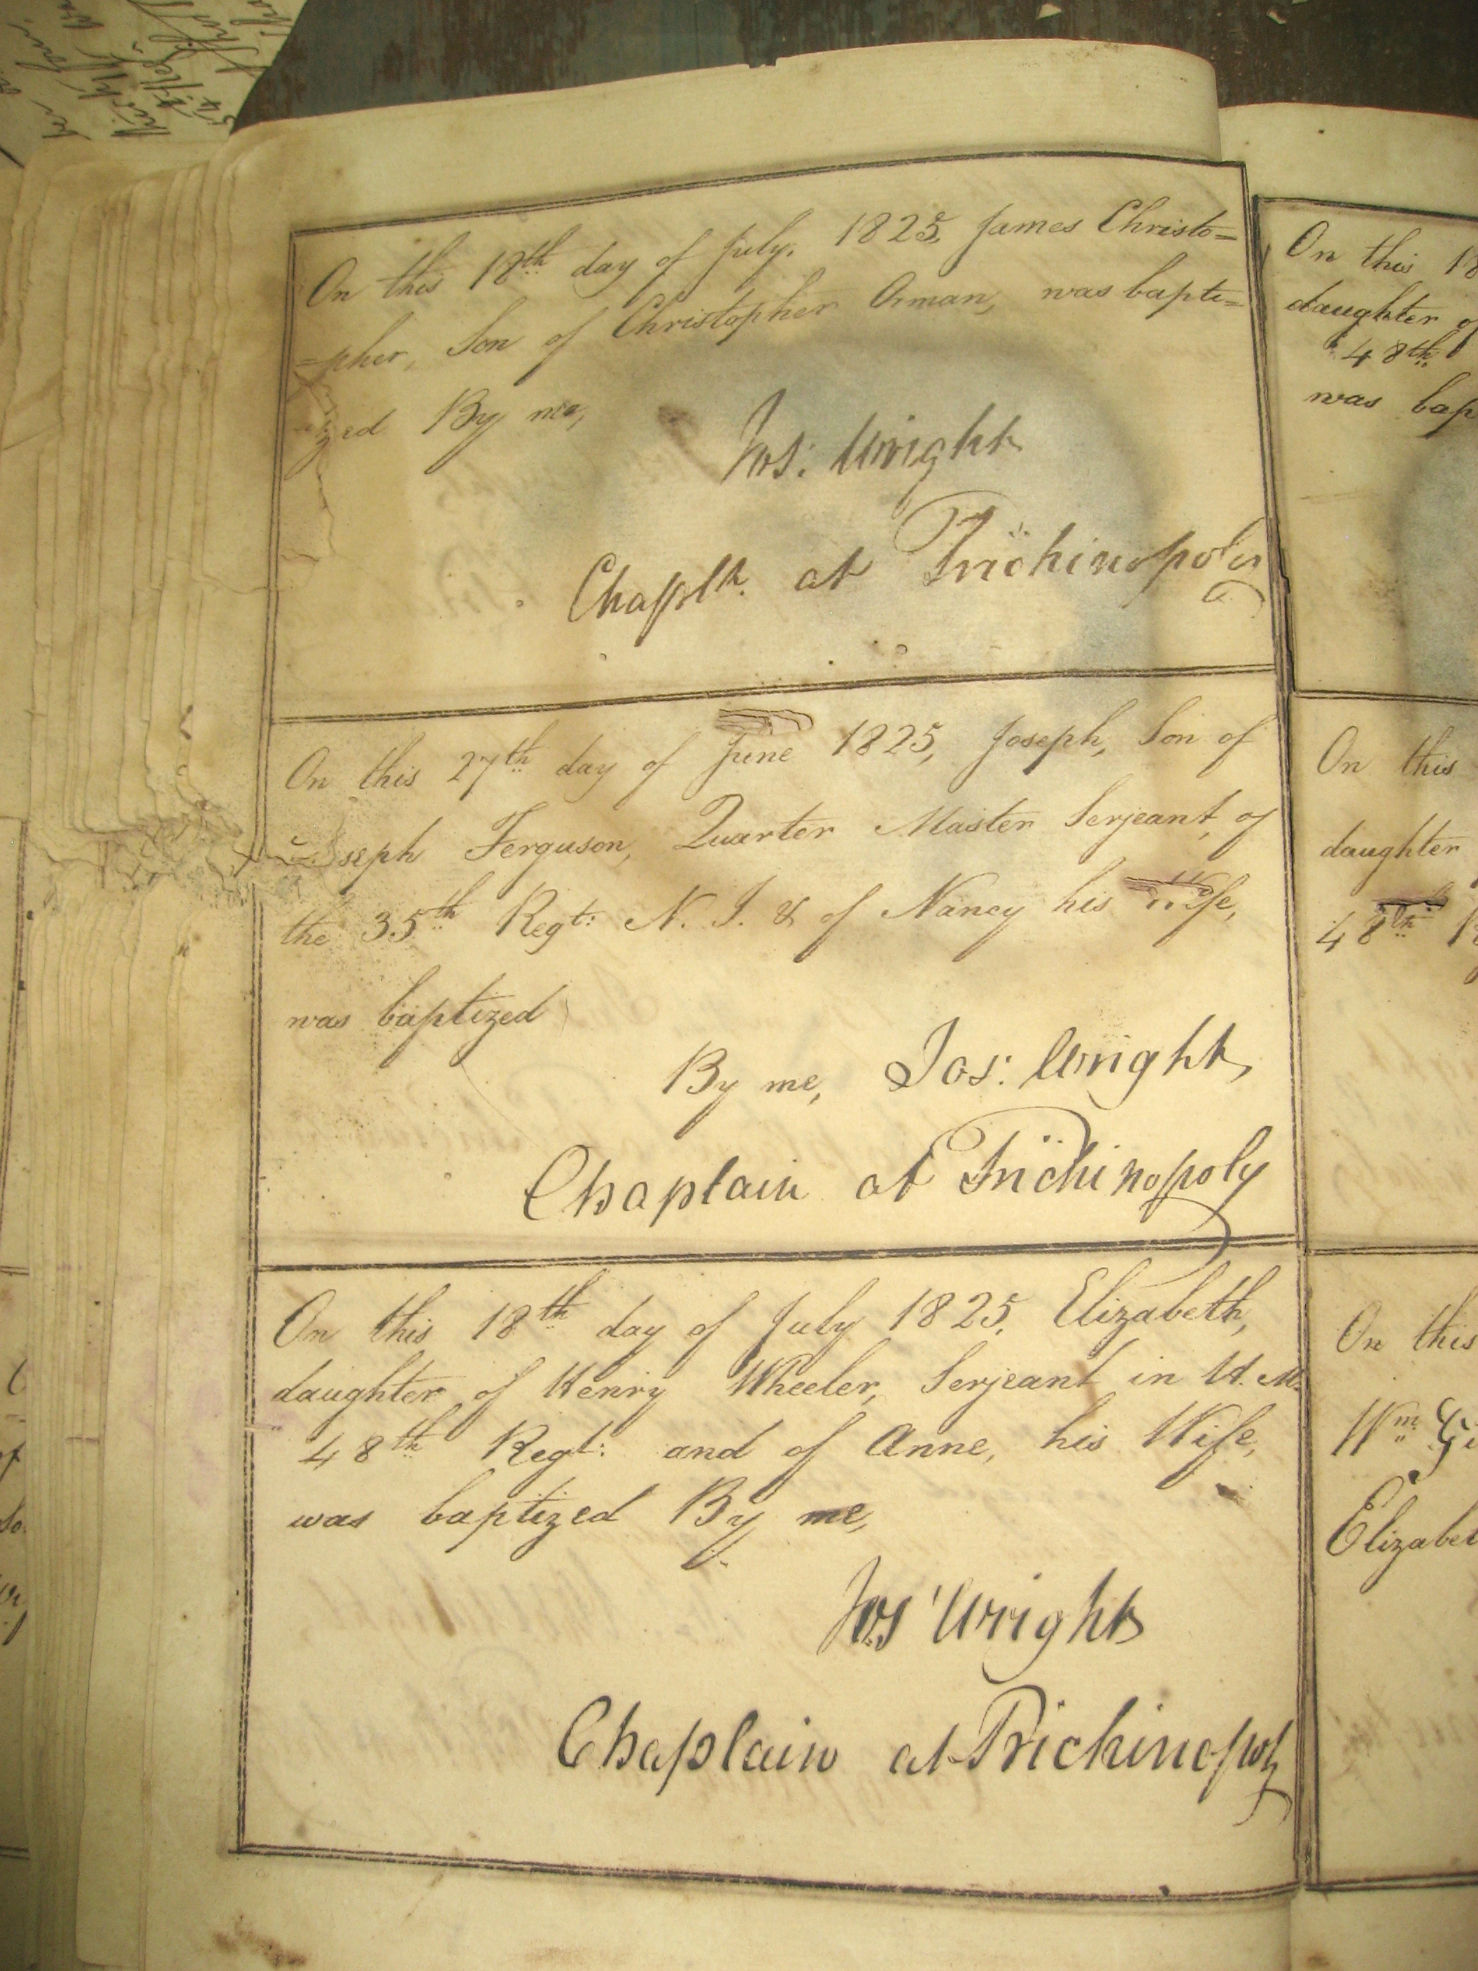 On this 18th day of July. 1825, James Christo=
=pher, Son of Christopher Orman, was bapti=
zed By me,
Jos: Wright
Chapln. at Trichinopoly
On this 27th day of June 1825, Joseph, Son of
Joseph Ferguson, Quarter Master Serjeant, of
the 35th Regt: N. I. & of Nancy his Wife,
was baptized
By me, Jos: Wright,
Chaplain at Trichinopoly
On this 18th day of July 1825, Elizabeth,
daughter of Henry Wheeler, Serjeant in H. M.
48th Regt: and of Anne, his Wife,
was baptized By me,
Jos Wright
Chaplain at Trichinopoly
On this 18
daughter of
48th
was bap
On this
daughter
48th
On this
Wm Gi
Elizabet